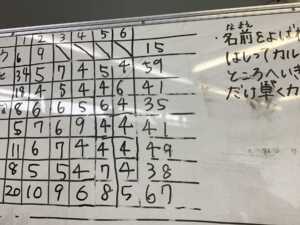 1 2 3 4 5 6
う 6 9 15
と 34 5 7 4 5 4 59
19 4 5 4 4 5 41
8 6 6 5 6 4 35
5 7 6 9 4 4 41
11 6 7 4 4 4 49
8 5 5 4 7 4 38
20 10 9 6 8 5 67
・名前をよばれ
なまえ
はしって(カル
ところへいき
だけ早くカ